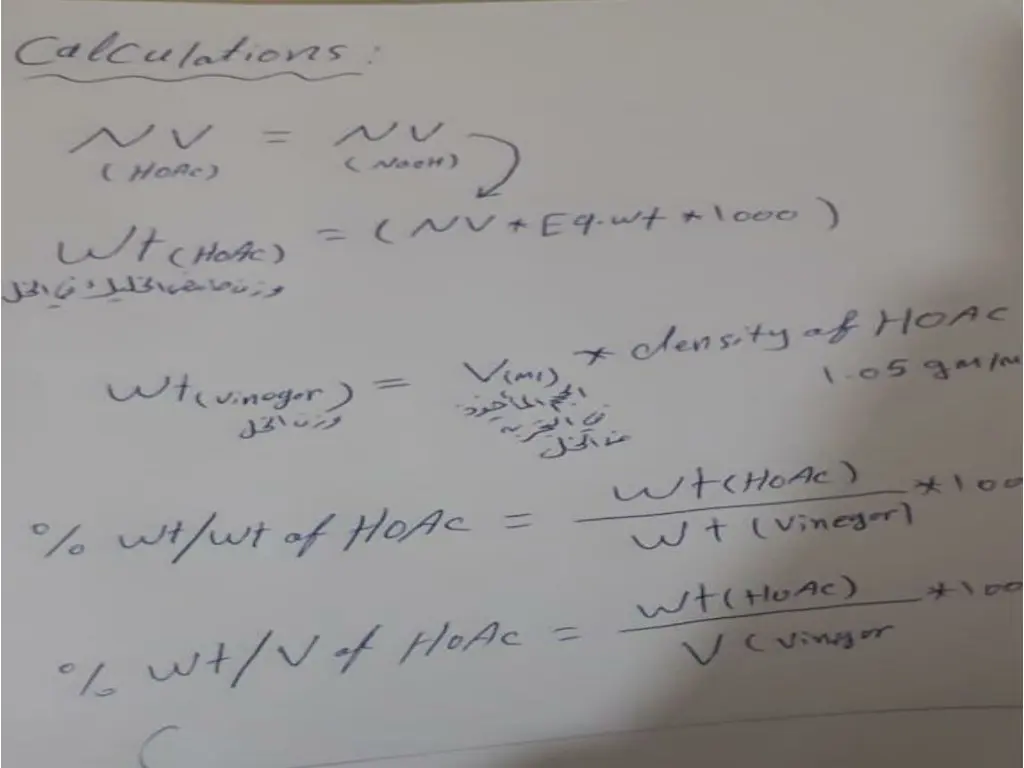 Calculations:
NV = NV
(HOAC) (NaOH)
Wt (HOAC) = (NV * Eq.wt * 1000)
وزن حامض الخليك في الخل
Wt (vinegar) = V(ml) * density of HOAC
وزن الخل الحجم المأخوذ 1.05 gm/m
في التجربة
من الخل
% wt/wt of HOAC = Wt (HOAC) / Wt (vinegar) *100
% Wt/V of HOAC = Wt (HOAC) / V (vinegar *100